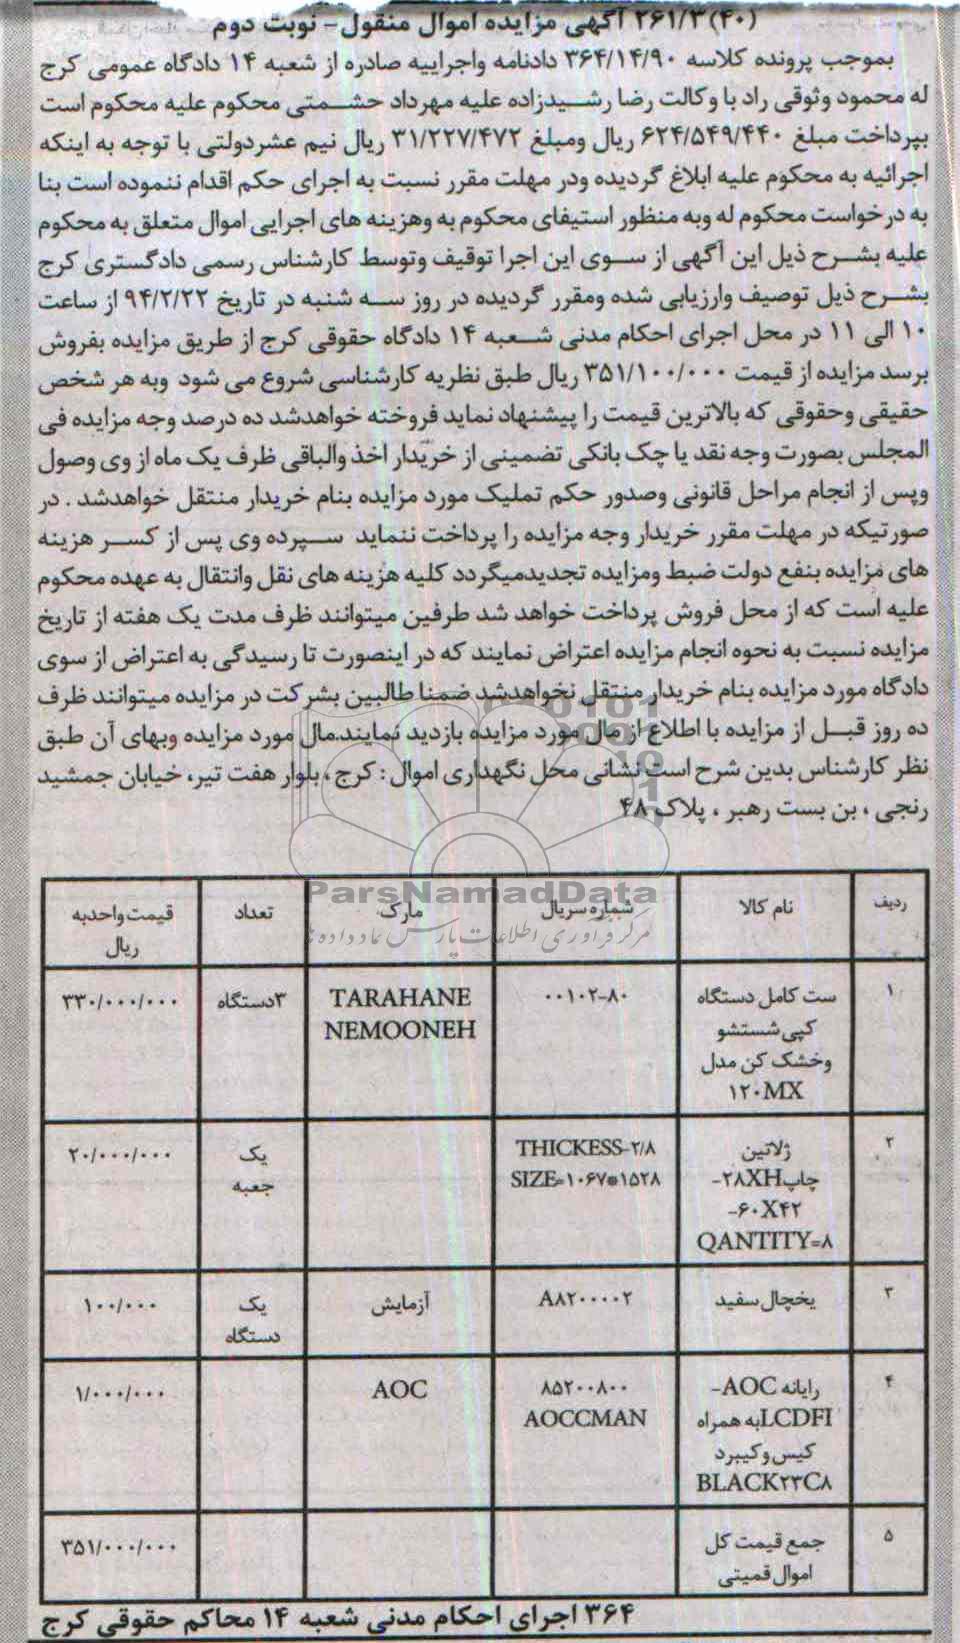 ۲۶۱/۳(۴۰) آگهی مزایده اموال منقول- نوبت دوم
بموجب پرونده کلاسه ۳۶۴/۱۴/۹۰ دادنامه واجراییه صادره از شعبه ۱۴ دادگاه عمومی کرج
له محمود وثوقی راد با وکالت رضا رشیدزاده علیه مهرداد حشمتی محکوم علیه محکوم است
بپرداخت مبلغ ۶۲۴/۵۴۹/۴۴۰ ریال ومبلغ ۳۱/۲۲۷/۴۷۲ ریال نیم عشردولتی با توجه به اینکه
اجرائیه به محکوم علیه ابلاغ گردیده ودر مهلت مقرر نسبت به اجرای حکم اقدام ننموده است بنا
به درخواست محکوم له وبه منظور استیفای محکوم به وهزینه های اجرایی اموال متعلق به محکوم
علیه بشرح ذیل این آگهی از سوی این اجرا توقیف وتوسط کارشناس رسمی دادگستری کرج
بشرح ذیل توصیف وارزیابی شده ومقرر گردیده در روز سه شنبه در تاریخ ۹۴/۲/۲۲ از ساعت
۱۰ الی ۱۱ در محل اجرای احکام مدنی شعبه ۱۴ دادگاه حقوقی کرج از طریق مزایده بفروش
برسد مزایده از قیمت ۳۵۱/۱۰۰/۰۰۰ ریال طبق نظریه کارشناسی شروع می شود وبه هر شخص
حقیقی وحقوقی که بالاترین قیمت را پیشنهاد نماید فروخته خواهدشد ده درصد وجه مزایده فی
المجلس بصورت وجه نقد یا چک بانکی تضمینی از خریدار اخذ والباقی ظرف یک ماه از وی وصول
وپس از انجام مراحل قانونی وصدور حکم تملیک مورد مزایده بنام خریدار منتقل خواهدشد . در
صورتیکه در مهلت مقرر خریدار وجه مزایده را پرداخت ننماید سپرده وی پس از کسر هزینه
های مزایده بنفع دولت ضبط ومزایده تجدیدمیگردد کلیه هزینه های نقل وانتقال به عهده محکوم
علیه است که از محل فروش پرداخت خواهد شد طرفین میتوانند ظرف مدت یک هفته از تاریخ
مزایده نسبت به نحوه انجام مزایده اعتراض نمایند که در اینصورت تا رسیدگی به اعتراض از سوی
دادگاه مورد مزایده بنام خریدار منتقل نخواهدشد ضمنا طالبین بشرکت در مزایده میتوانند ظرف
ده روز قبل از مزایده با اطلاع از مال مورد مزایده بازدید نمایند.مال مورد مزایده وبهای آن طبق
نظر کارشناس بدین شرح است نشانی محل نگهداری اموال : کرج ، بلوار هفت تیر، خیابان جمشید
رنجی ، بن بست رهبر ، پلاک ۴۸
ParsNamadData
مرکز فرآوری اطلاعات پارس نماد داده ها
ردیف نام کالا شماره سریال مارک تعداد قیمت واحدبه
ریال
۱ ست کامل دستگاه ۰۰۱۰۲-۸۰ TARAHANE ۳دستگاه ۳۳۰/۰۰۰/۰۰۰
کپی شستشو NEMOONEH
وخشک کن مدل
۱۲۰MX
۲ ژلاتین THICKESS-۲/۸ یک ۲۰/۰۰۰/۰۰۰
چاپ۲۸XH- SIZE=۱۰۶۷*۱۵۲۸ جعبه
۶۰X۴۲-
QANTITY=۸
۳ یخچال سفید A۸۲۰۰۰۰۲ آزمایش یک ۱۰۰/۰۰۰
دستگاه
۴ رایانه AOC- ۸۵۲۰۰۸۰۰ AOC ۱/۰۰۰/۰۰۰
LCDFIبه همراه AOCCMAN
کیس وکیبرد
BLACK۲۳C۸
۵ جمع قیمت کل ۳۵۱/۰۰۰/۰۰۰
اموال قمیتی
۳۶۴ اجرای احکام مدنی شعبه ۱۴ محاکم حقوقی کرج